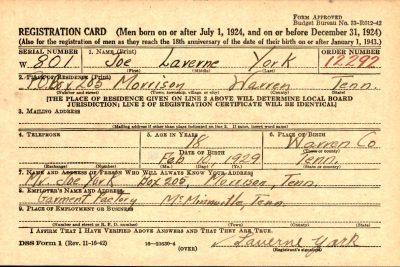 FORM APPROVED
Budget Bureau No. 33-R012-42
REGISTRATION CARD (Men born on or after July 1, 1924, and on or before December 31, 1924)
(Also for the registration of men as they reach the 18th anniversary of the date of their birth on or after January 1, 1943.)
SERIAL NUMBER 1. NAME (Print) ORDER NUMBER
W 801 Joe Laverne York 12292
(First) (Middle) (Last)
2. PLACE OF RESIDENCE (Print)
Box 203 Morrison Warren Tenn.
(Number and street) (Town, township, village, or city) (County) (State)
[THE PLACE OF RESIDENCE GIVEN ON LINE 2 ABOVE WILL DETERMINE LOCAL BOARD
JURISDICTION; LINE 2 OF REGISTRATION CERTIFICATE WILL BE IDENTICAL]
3. MAILING ADDRESS
[Mailing address if other than place indicated on line 2. If same, insert word same]
4. TELEPHONE 5. AGE IN YEARS 6. PLACE OF BIRTH
18 Warren Co.
DATE OF BIRTH (Town or county)
Feb 10, 1929 Tenn.
(Exchange) (Number) (Mo.) (Day) (Yr.) (State or country)
7. NAME AND ADDRESS OF PERSON WHO WILL ALWAYS KNOW YOUR ADDRESS
Mr. Joe York Box 203, Morrison, Tenn.
8. EMPLOYER'S NAME AND ADDRESS
Garment Factory McMinnville, Tenn.
9. PLACE OF EMPLOYMENT OR BUSINESS
(Number and street or R. F. D. number) (Town) (County) (State)
I AFFIRM THAT I HAVE VERIFIED ABOVE ANSWERS AND THAT THEY ARE TRUE.
DSS Form 1 (Rev. 11-16-42) (OVER) Laverne York
(Registrant's signature)